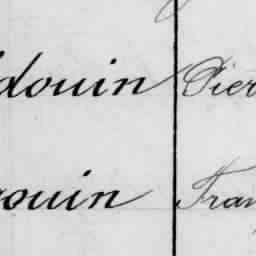 douin Pier
ouin Fran